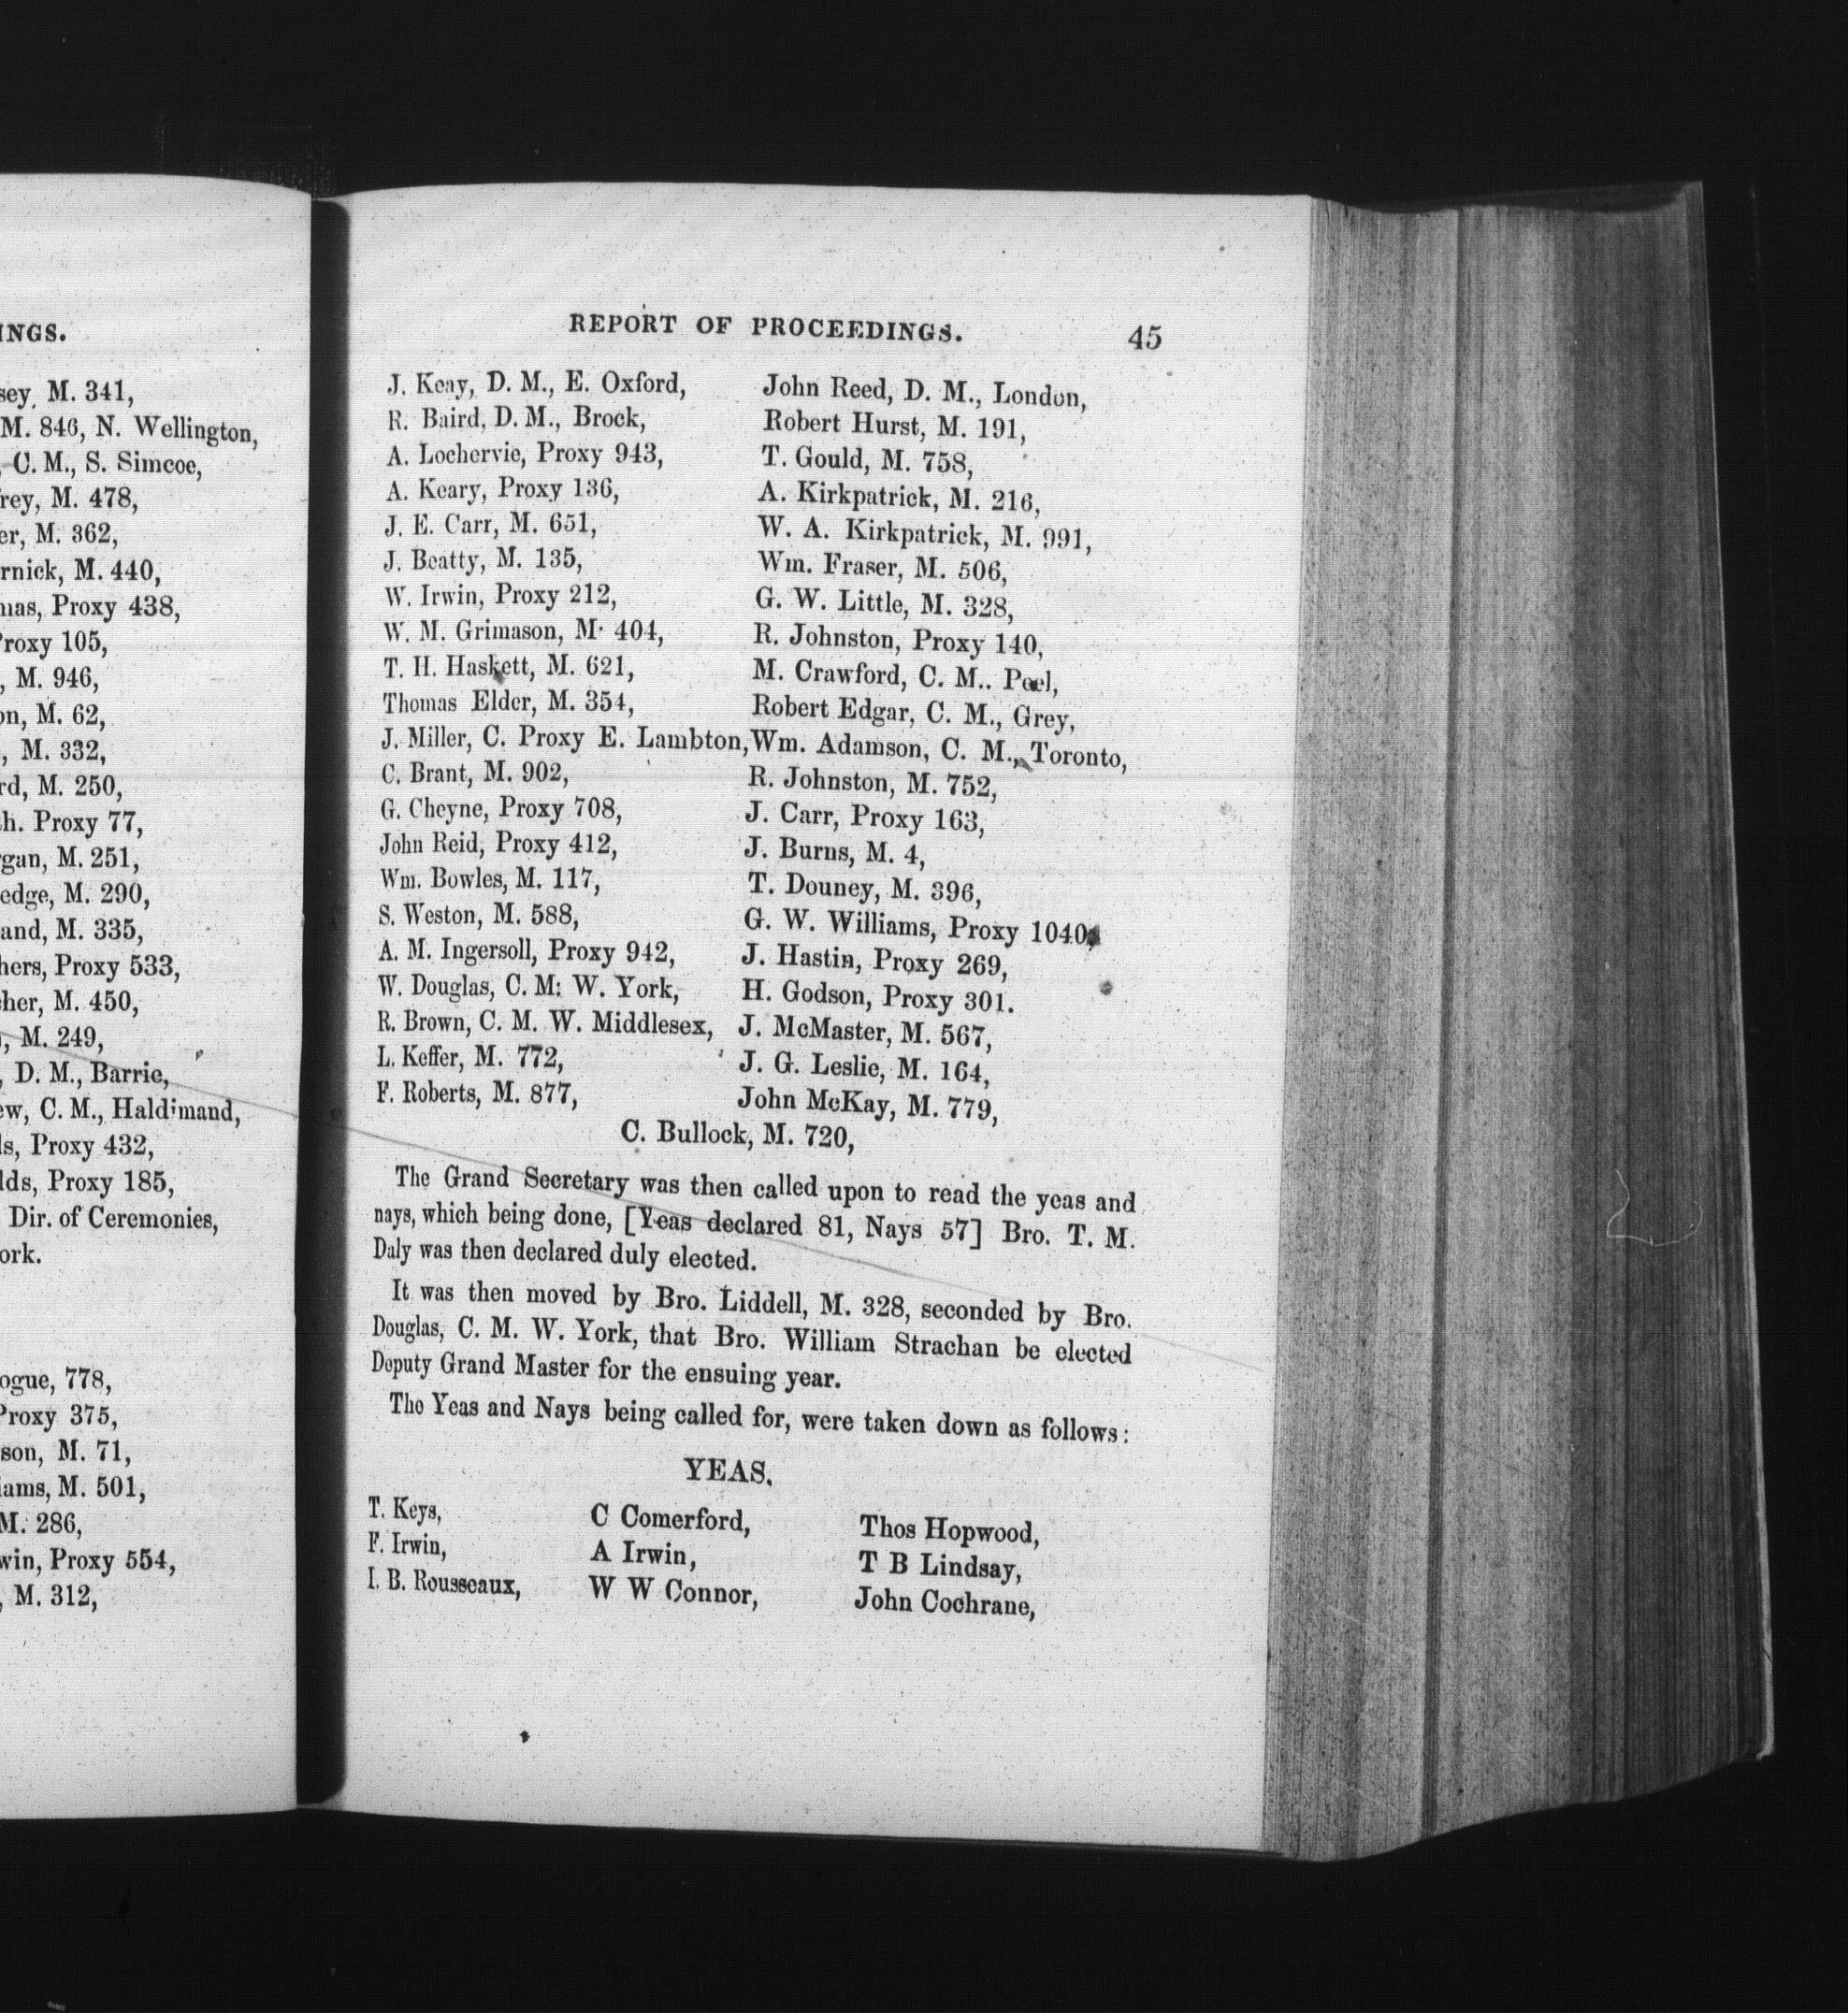 INGS.
sey, M. 341,
M. 846, N. Wellington,
, C. M., S. Simcoe,
rey, M. 478,
er, M. 362,
rnick, M. 440,
mas, Proxy 438,
Proxy 105,
, M. 946,
on, M. 62,
, M. 332,
rd, M. 250,
th. Proxy 77,
rgan, M. 251,
edge, M. 290,
and, M. 335,
hers, Proxy 533,
cher, M. 450,
, M. 249,
, D. M., Barrie,
ew, C. M., Haldimand,
ls, Proxy 432,
lds, Proxy 185,
Dir. of Ceremonies,
ork.
ogue, 778,
Proxy 375,
son, M. 71,
iams, M. 501,
M. 286,
win, Proxy 554,
, M. 312,
REPORT OF PROCEEDINGS. 45
J. Keay, D. M., E. Oxford, John Reed, D. M., London,
R. Baird, D. M., Brock, Robert Hurst, M. 191,
A. Lochervie, Proxy 943, T. Gould, M. 758,
A. Keary, Proxy 136, A. Kirkpatrick, M. 216,
J. E. Carr, M. 651, W. A. Kirkpatrick, M. 991,
J. Beatty, M. 135, Wm. Fraser, M. 506,
W. Irwin, Proxy 212, G. W. Little, M. 328,
W. M. Grimason, M. 404, R. Johnston, Proxy 140,
T. H. Haskett, M. 621, M. Crawford, C. M.. Peel,
Thomas Elder, M. 354, Robert Edgar, C. M., Grey,
J. Miller, C. Proxy E. Lambton, Wm. Adamson, C. M., Toronto,
C. Brant, M. 902, R. Johnston, M. 752,
G. Cheyne, Proxy 708, J. Carr, Proxy 163,
John Reid, Proxy 412, J. Burns, M. 4,
Wm. Bowles, M. 117, T. Douney, M. 396,
S. Weston, M. 588, G. W. Williams, Proxy 1040,
A. M. Ingersoll, Proxy 942, J. Hastin, Proxy 269,
W. Douglas, C. M: W. York, H. Godson, Proxy 301.
R. Brown, C. M. W. Middlesex, J. McMaster, M. 567,
L. Keffer, M. 772, J. G. Leslie, M. 164,
F. Roberts, M. 877, John McKay, M. 779,
C. Bullock, M. 720,
The Grand Secretary was then called upon to read the yeas and
nays, which being done, [Yeas declared 81, Nays 57] Bro. T. M.
Daly was then declared duly elected.
It was then moved by Bro. Liddell, M. 328, seconded by Bro.
Douglas, C. M. W. York, that Bro. William Strachan be elected
Deputy Grand Master for the ensuing year.
The Yeas and Nays being called for, were taken down as follows:
YEAS.
T. Keys, C Comerford, Thos Hopwood,
F. Irwin, A Irwin, T B Lindsay,
I. B. Rousseaux, W W Connor, John Cochrane,